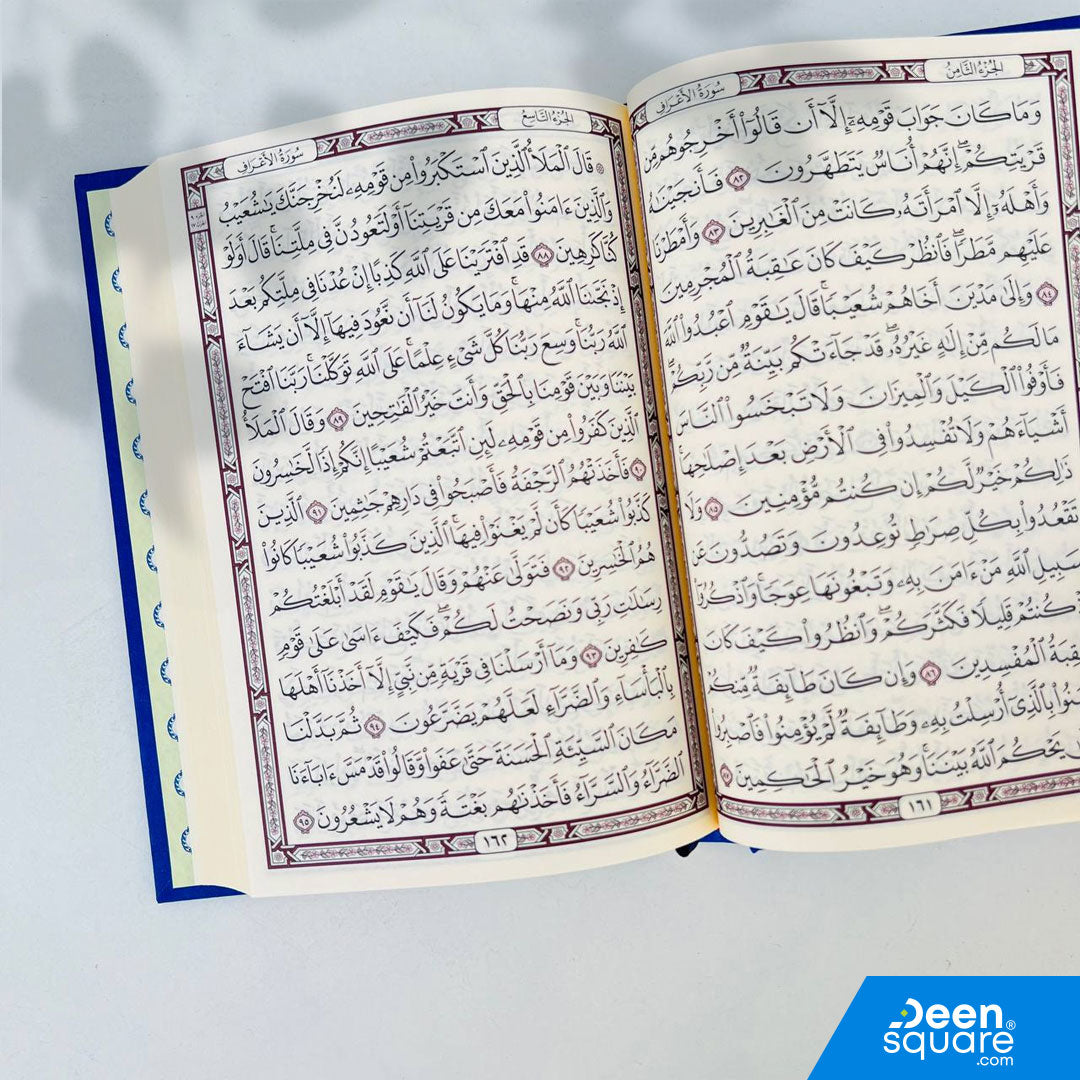 الجزء الثامن
سورة الأعراف
وَمَا كَانَ جَوَابَ قَوْمِهِۦٓ إِلَّآ أَن قَالُوٓا۟ أَخْرِجُوهُم مِّن
قَرْيَتِكُمْ ۖ إِنَّهُمْ أُنَاسٌ يَتَطَهَّرُونَ ٨٢ فَأَنجَيْنَٰهُ
وَأَهْلَهُۥٓ إِلَّا ٱمْرَأَتَهُۥ كَانَتْ مِنَ ٱلْغَٰبِرِينَ ٨٣ وَأَمْطَرْنَا
عَلَيْهِم مَّطَرًا ۖ فَٱنظُرْ كَيْفَ كَانَ عَٰقِبَةُ ٱلْمُجْرِمِينَ
٨٤ وَإِلَىٰ مَدْيَنَ أَخَاهُمْ شُعَيْبًا ۗ قَالَ يَٰقَوْمِ ٱعْبُدُوا۟ ٱللَّهَ
مَا لَكُم مِّنْ إِلَٰهٍ غَيْرُهُۥ ۖ قَدْ جَآءَتْكُم بَيِّنَةٌ مِّن رَّبِّكُمْ ۖ
فَأَوْفُوا۟ ٱلْكَيْلَ وَٱلْمِيزَانَ وَلَا تَبْخَسُوا۟ ٱلنَّاسَ
أَشْيَآءَهُمْ وَلَا تُفْسِدُوا۟ فِى ٱلْأَرْضِ بَعْدَ إِصْلَٰحِهَا ۚ
ذَٰلِكُمْ خَيْرٌ لَّكُمْ إِن كُنتُم مُّؤْمِنِينَ ٨٥ وَلَا
تَقْعُدُوا۟ بِكُلِّ صِرَٰطٍ تُوعِدُونَ وَتَصُدُّونَ عَن
سَبِيلِ ٱللَّهِ مَنْ ءَامَنَ بِهِۦ وَتَبْغُونَهَا عِوَجًا ۚ وَٱذْكُرُوٓا۟
كُنتُمْ قَلِيلًا فَكَثَّرَكُمْ ۖ وَٱنظُرُوا۟ كَيْفَ كَانَ
ٱلْمُفْسِدِينَ ٨٦ وَإِن كَانَ طَآئِفَةٌ مِّنكُمْ
بِٱلَّذِىٓ أُرْسِلْتُ بِهِۦ وَطَآئِفَةٌ لَّمْ يُؤْمِنُوا۟ فَٱصْبِرُوا۟
يَحْكُمَ ٱللَّهُ بَيْنَنَا ۚ وَهُوَ خَيْرُ ٱلْحَٰكِمِينَ ٨٧
١٦١
الجزء التاسع
سورة الأعراف
قَالَ ٱلْمَلَأُ ٱلَّذِينَ ٱسْتَكْبَرُوا۟ مِن قَوْمِهِۦ لَنُخْرِجَنَّكَ يَٰشُعَيْبُ
وَٱلَّذِينَ ءَامَنُوا۟ مَعَكَ مِن قَرْيَتِنَآ أَوْ لَتَعُودُنَّ فِى مِلَّتِنَا ۚ قَالَ أَوَلَوْ
كُنَّا كَٰرِهِينَ ٨٨ قَدِ ٱفْتَرَيْنَا عَلَى ٱللَّهِ كَذِبًا إِنْ عُدْنَا فِى مِلَّتِكُم بَعْدَ
إِذْ نَجَّىٰنَا ٱللَّهُ مِنْهَا ۚ وَمَا يَكُونُ لَنَآ أَن نَّعُودَ فِيهَآ إِلَّآ أَن يَشَآءَ
ٱللَّهُ رَبُّنَا ۚ وَسِعَ رَبُّنَا كُلَّ شَىْءٍ عِلْمًا ۚ عَلَى ٱللَّهِ تَوَكَّلْنَا ۚ رَبَّنَا ٱفْتَحْ
بَيْنَنَا وَبَيْنَ قَوْمِنَا بِٱلْحَقِّ وَأَنتَ خَيْرُ ٱلْفَٰتِحِينَ ٨٩ وَقَالَ ٱلْمَلَأُ
ٱلَّذِينَ كَفَرُوا۟ مِن قَوْمِهِۦ لَئِنِ ٱتَّبَعْتُمْ شُعَيْبًا إِنَّكُمْ إِذًا لَّخَٰسِرُونَ
٩٠ فَأَخَذَتْهُمُ ٱلرَّجْفَةُ فَأَصْبَحُوا۟ فِى دَارِهِمْ جَٰثِمِينَ ٩١ ٱلَّذِينَ
كَذَّبُوا۟ شُعَيْبًا كَأَن لَّمْ يَغْنَوْا۟ فِيهَا ۚ ٱلَّذِينَ كَذَّبُوا۟ شُعَيْبًا كَانُوا۟
هُمُ ٱلْخَٰسِرِينَ ٩٢ فَتَوَلَّىٰ عَنْهُمْ وَقَالَ يَٰقَوْمِ لَقَدْ أَبْلَغْتُكُمْ
رِسَٰلَٰتِ رَبِّى وَنَصَحْتُ لَكُمْ ۖ فَكَيْفَ ءَاسَىٰ عَلَىٰ قَوْمٍ
كَٰفِرِينَ ٩٣ وَمَآ أَرْسَلْنَا فِى قَرْيَةٍ مِّن نَّبِىٍّ إِلَّآ أَخَذْنَآ أَهْلَهَا
بِٱلْبَأْسَآءِ وَٱلضَّرَّآءِ لَعَلَّهُمْ يَضَّرَّعُونَ ٩٤ ثُمَّ بَدَّلْنَا
مَكَانَ ٱلسَّيِّئَةِ ٱلْحَسَنَةَ حَتَّىٰ عَفَوا۟ وَّقَالُوا۟ قَدْ مَسَّ ءَابَآءَنَا
ٱلضَّرَّآءُ وَٱلسَّرَّآءُ فَأَخَذْنَٰهُم بَغْتَةً وَهُمْ لَا يَشْعُرُونَ ٩٥
١٦٢
Deen
square®
.com